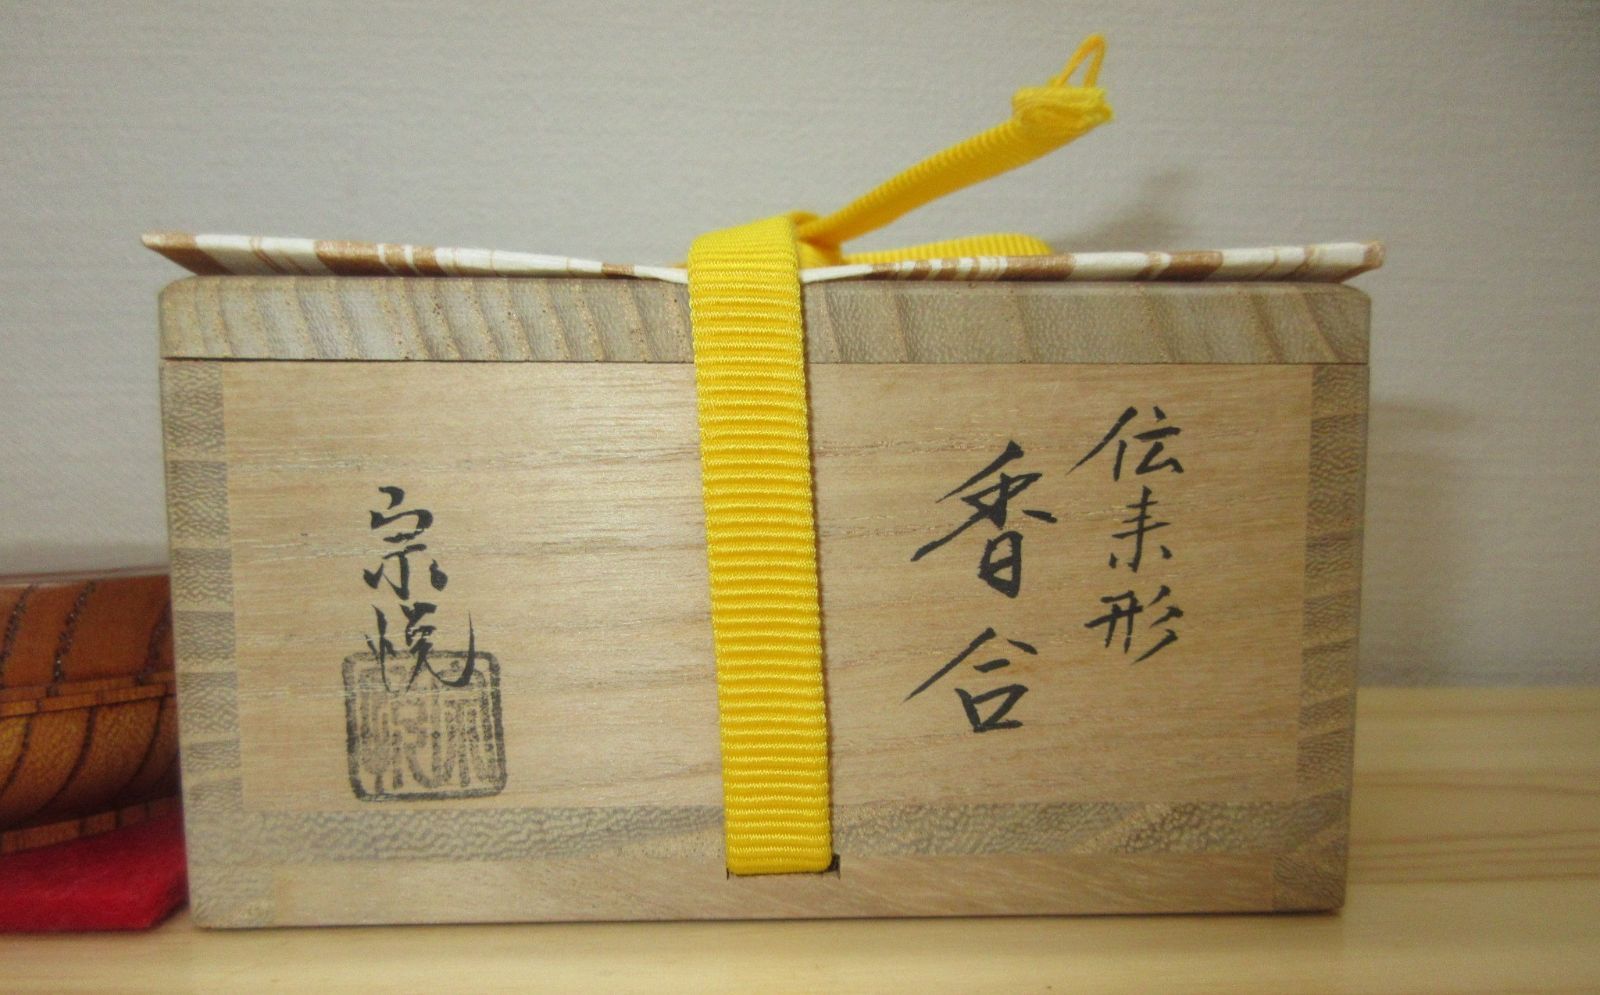 伝来形
香合
宗悦